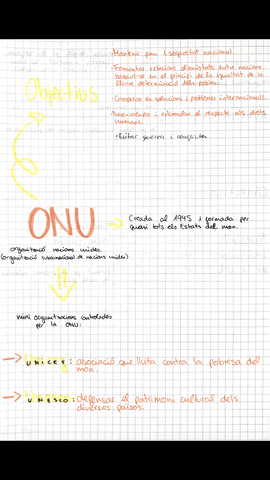 · Mantenir pau i seguretat nacional.
· Fomentar relacions d'amistats entre nacions
basant-se en el principi de la igualtat de la
lliure determinació dels pobles.
Objectius
· Cooperar en solucions i problemes internacionals.
· Desenvolupar i estimular el respecte als drets
humans.
· Evitar guerres i conflictes
ONU
Creada al 1945 i formada per
quasi tots els Estats del mon.
organització nacions unides.
(organització supranacional de nacions unides)
mini organitzacions controlades
per la ONU:
UNICEF: associació que lluita contra la pobresa del
mon.
UNESCO: defensar el patrimoni cultural dels
diversos països.